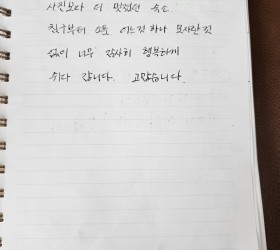 사진보다 더 멋졌던 숙소.
친구부터 소품 어느것 하나 모자란 것
없이 너무 감사히 행복하게
쉬다 갑니다. 고맙습니다.